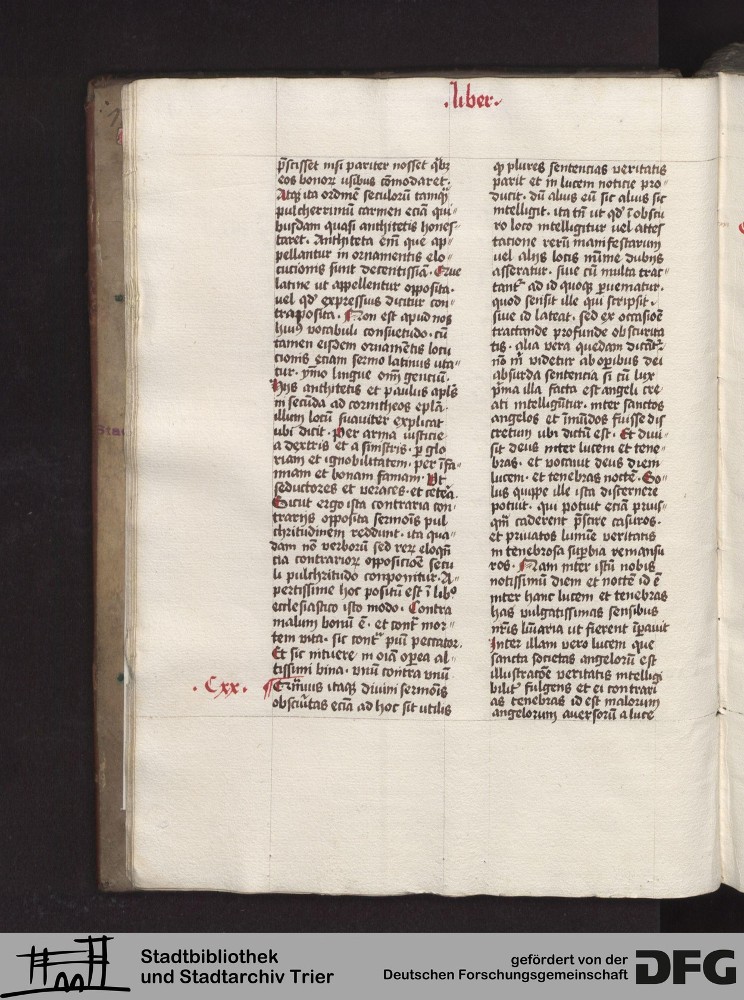 .liber.
p̄scisset nisi pariter nosset qͥbꝫ
eos bonoꝝ usibus cōmodaret.
Atqꝫ ita ordinē seculorū tamqͣ
pulcherrimū carmen eciā qui„
busdam quasi anthitetis hones„
taret. Anthiteta em̄ que ap„
pellantur in ornamentis elo„
cucionis sunt decentissīa. Que
latine ut appellentur opposita.
uel qd̓ expressius dicitur con„
traposita. Non est apud nos
huiꝰ vocabuli consuetudo. cū
tamen eisdem ornamētis locu
cionis eciam sermo latinus uta„
tur. ymo lingue om̄i genciū.
Hijs anthitetis et paulus apl̓s
in secūda ad corintheos epl̓a.
illum locū suauiter explicat
ubi dicit. Per arma iusticie„
a dextris et a sinistris. ꝑ glo
riam et ignobilitatem. per īfa„
miam et bonam famam. Ut
seductores et veraces. et cetēa.
Sicut ergo ista contraria con„
trarijs opposita sermoīs pul
chritudinem reddunt. ita qua„
dam nō verborū sed reꝝ eloqn̄
cia contrarioꝝ opposicioē secu
li pulchritudo conponitur. A„
pertissime hoc positū est ī libͦ
ecclesiastico isto modo. Contra
malum bonū ē. et contͣ mor„
tem vita. sic contͣ piū peccator.
Et sic intuere in oīa oꝑa al„
tissimi bina. vnū contra vnū
.Cxx. Qͣmuis itaqꝫ diuini sermoīs
obscūtas eciā ad hoc sit utilis
qꝫ plures sentencias ueritatis
parit et in lucem noticie pro„
ducit. dū alius eū sic alius sic
intelligit. ita tn̄ ut qd̓ ī obscu
ro loco intelligitur uel attes
tatione rerū manifestarum
uel alijs locis mīme dubijs
asseratur. siue cū multa trac„
tantͬ ad id quoqꝫ ꝑuematur.
quod sensit ille qui scripsit.
siue id lateat. sed ex occasiōē
tractande profunde obscurita
tis. alia vera quedam dicātͬ.
nō m̄ videtur ab oꝑibus dei
absurda sentencia si cū lux
p̄ma illa facta est angeli cre
ati intelligūtur. inter sanctos
angelos et īmūdos fuisse dis
cretum ubi dictū est. Et diui„
sit deus inter lucem et tene„
bras. et vocauit deus diem
lucem. et tenebras noctē. So„
lus quippe ille ista discernere
potuit. qui potuit eciā prius„
qͣm caderent p̄scire casuros.
et priuatos lumīe veritatis
in tenebrosa suꝑbia remansu
ros. Nam inter istū nobis
notissimū diem et noctē id ē
inter hanc lucem et tenebras
has vulgatissimas sensibus
nr̄is lūaria ut fierent īꝑauit
Inter illam vero lucem que
sancta societas angelorū est
illustracōe veritatis intelligi
bilitͬ fulgens et ei contrari
as tenebras id est malorum
angelorum auersorū a luce
Stadtbibliothek
und Stadtarchiv Trier
gefördert von der
Deutschen Forschungsgemeinschaft
DFG